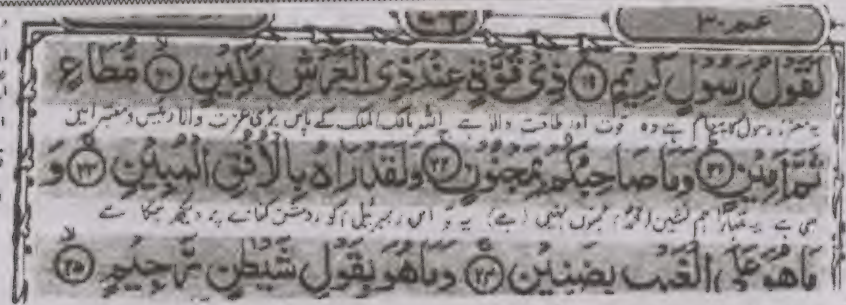 عم ٣٠
لَقَوْلُ رَسُولٍ كَرِيْمٍ ۙ۱۹ ذِيْ قُوَّةٍ عِنْدَ ذِي الْعَرْشِ مَكِيْنٍ ۙ۲۰ مُّطَاعٍ
رسول کا پیغام ہے وہ قوت اور طاقت والا ہے اللہ مالک الملک کے پاس بڑی عزت والا رئیس و معتبر امین
ثَمَّ اَمِيْنٍ ۲۱ وَمَا صَاحِبُكُمْ بِمَجْنُوْنٍ ۲۲ وَلَقَدْ رَاٰهُ بِالْاُفُقِ الْمُبِيْنِ ۲۳ وَ
بھی ہے یہ تمہارا ہم نشین مجنوں نہیں (ہے) یہ تو اس جبریل کو روشن کنارے پر دیکھ چکا ہے
مَا هُوَ عَلَى الْغَيْبِ بِضَنِيْنٍ ۲۴ وَمَا هُوَ بِقَوْلِ شَيْطٰنٍ رَّجِيْمٍ ۙ۲۵